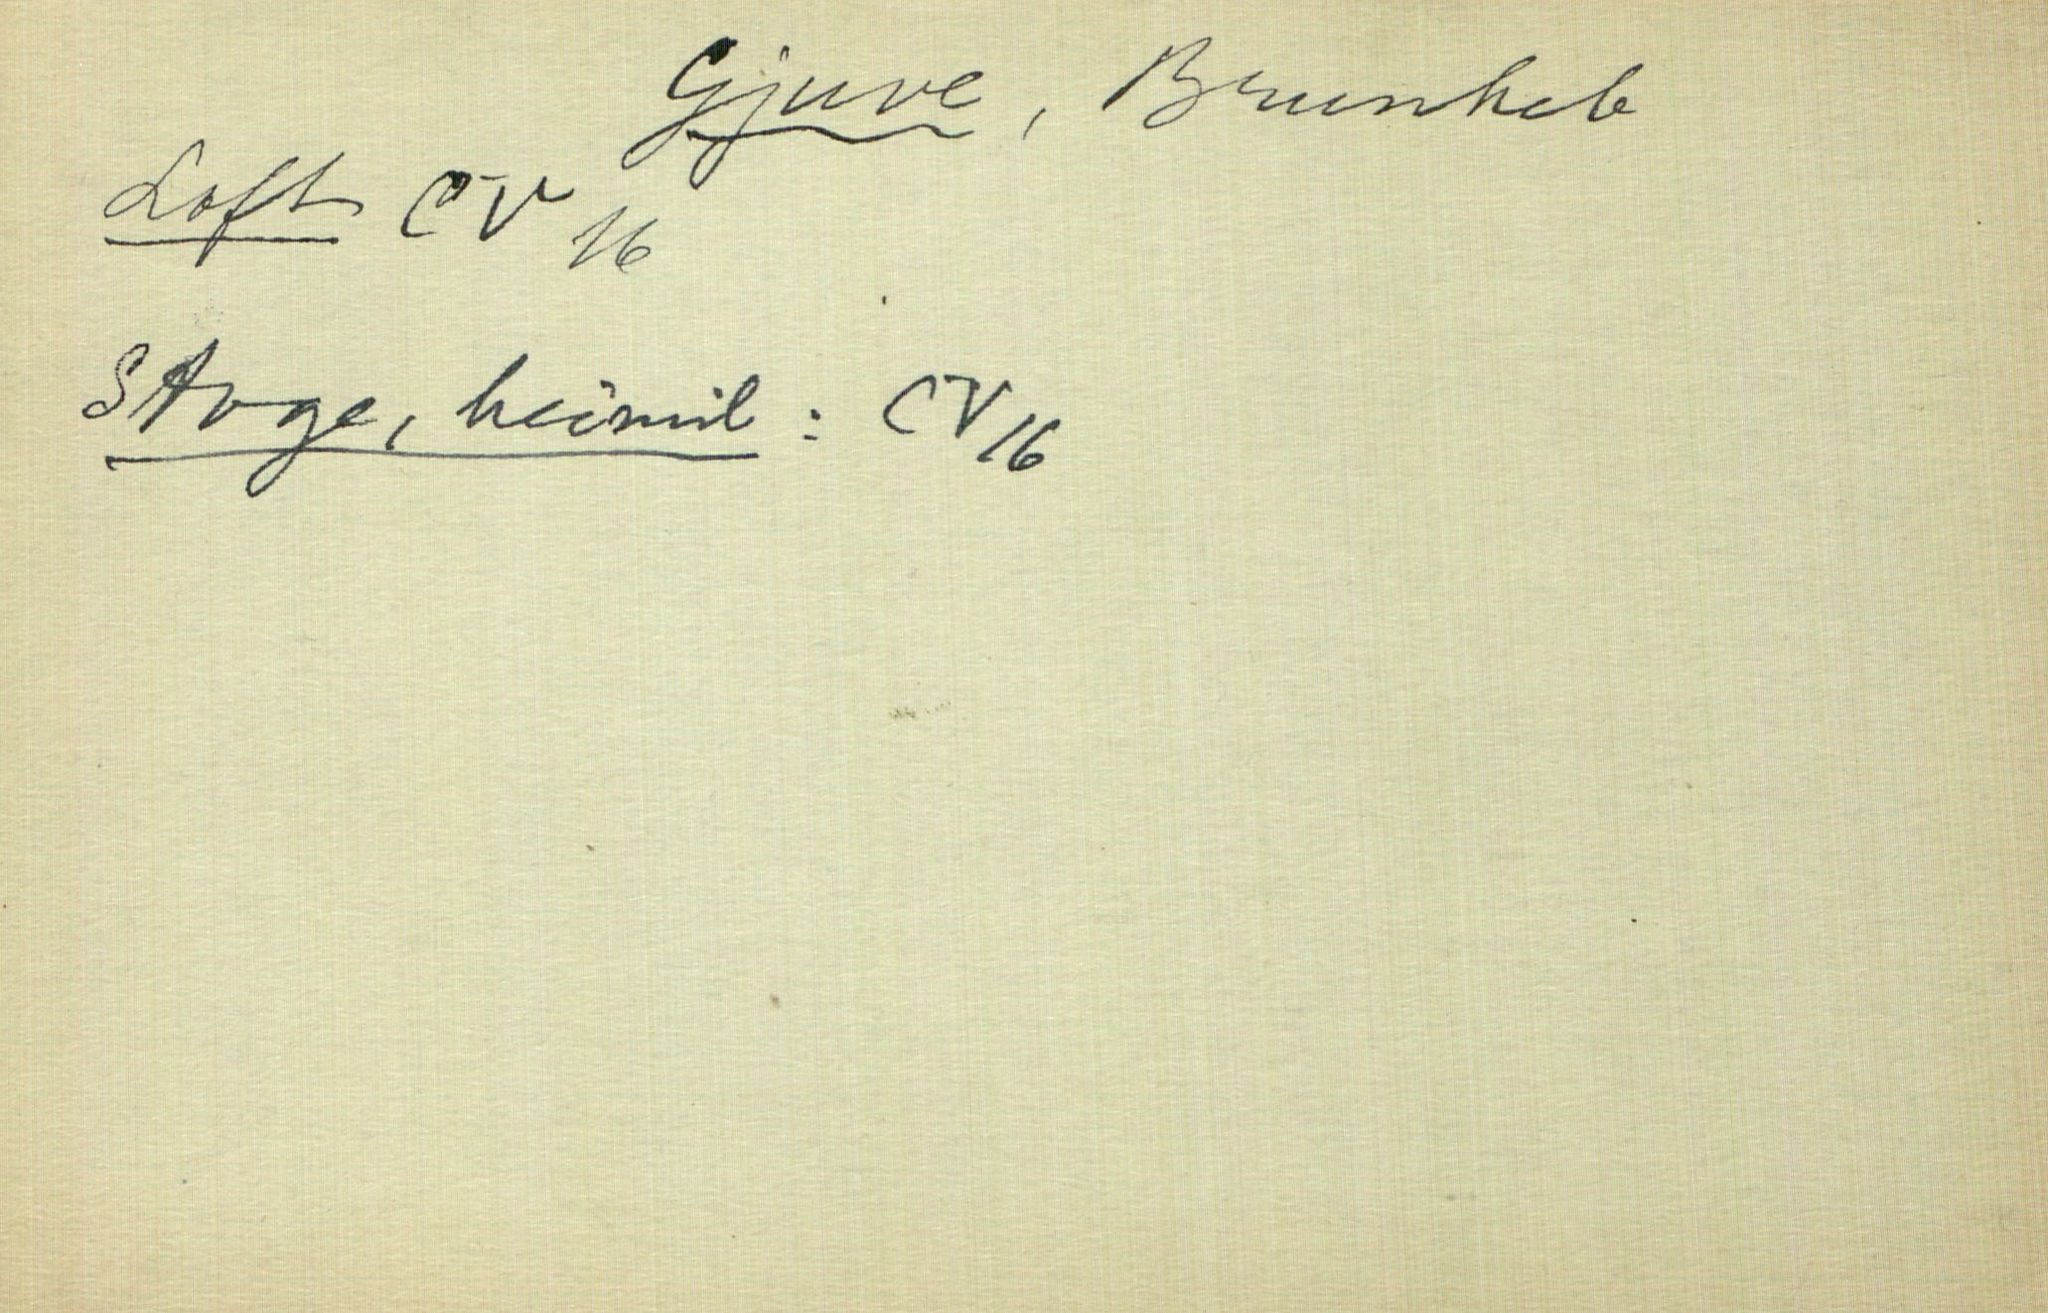 Gjuve, Brunkeb
Loft CV 16
Stoge, heimil : CV 16